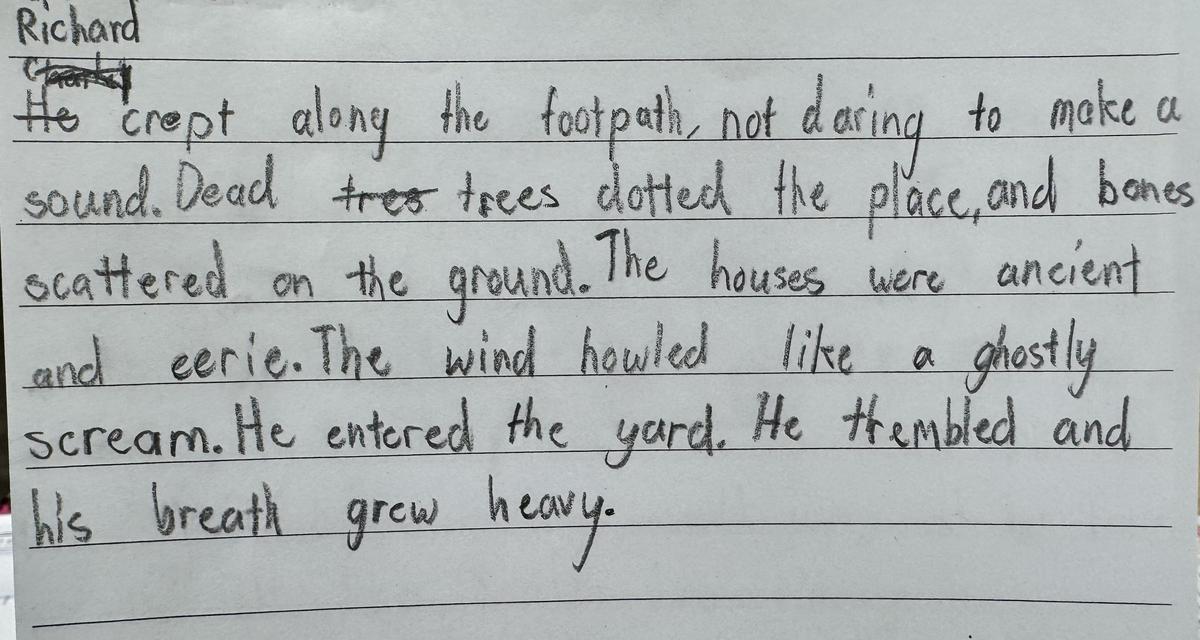 Richard
He crept along the footpath, not daring to make a
sound. Dead tres trees dotted the place, and bones
scattered on the ground. The houses were ancient
and eerie. The wind howled like a ghostly
scream. He entered the yard. He trembled and
his breath grew heavy.